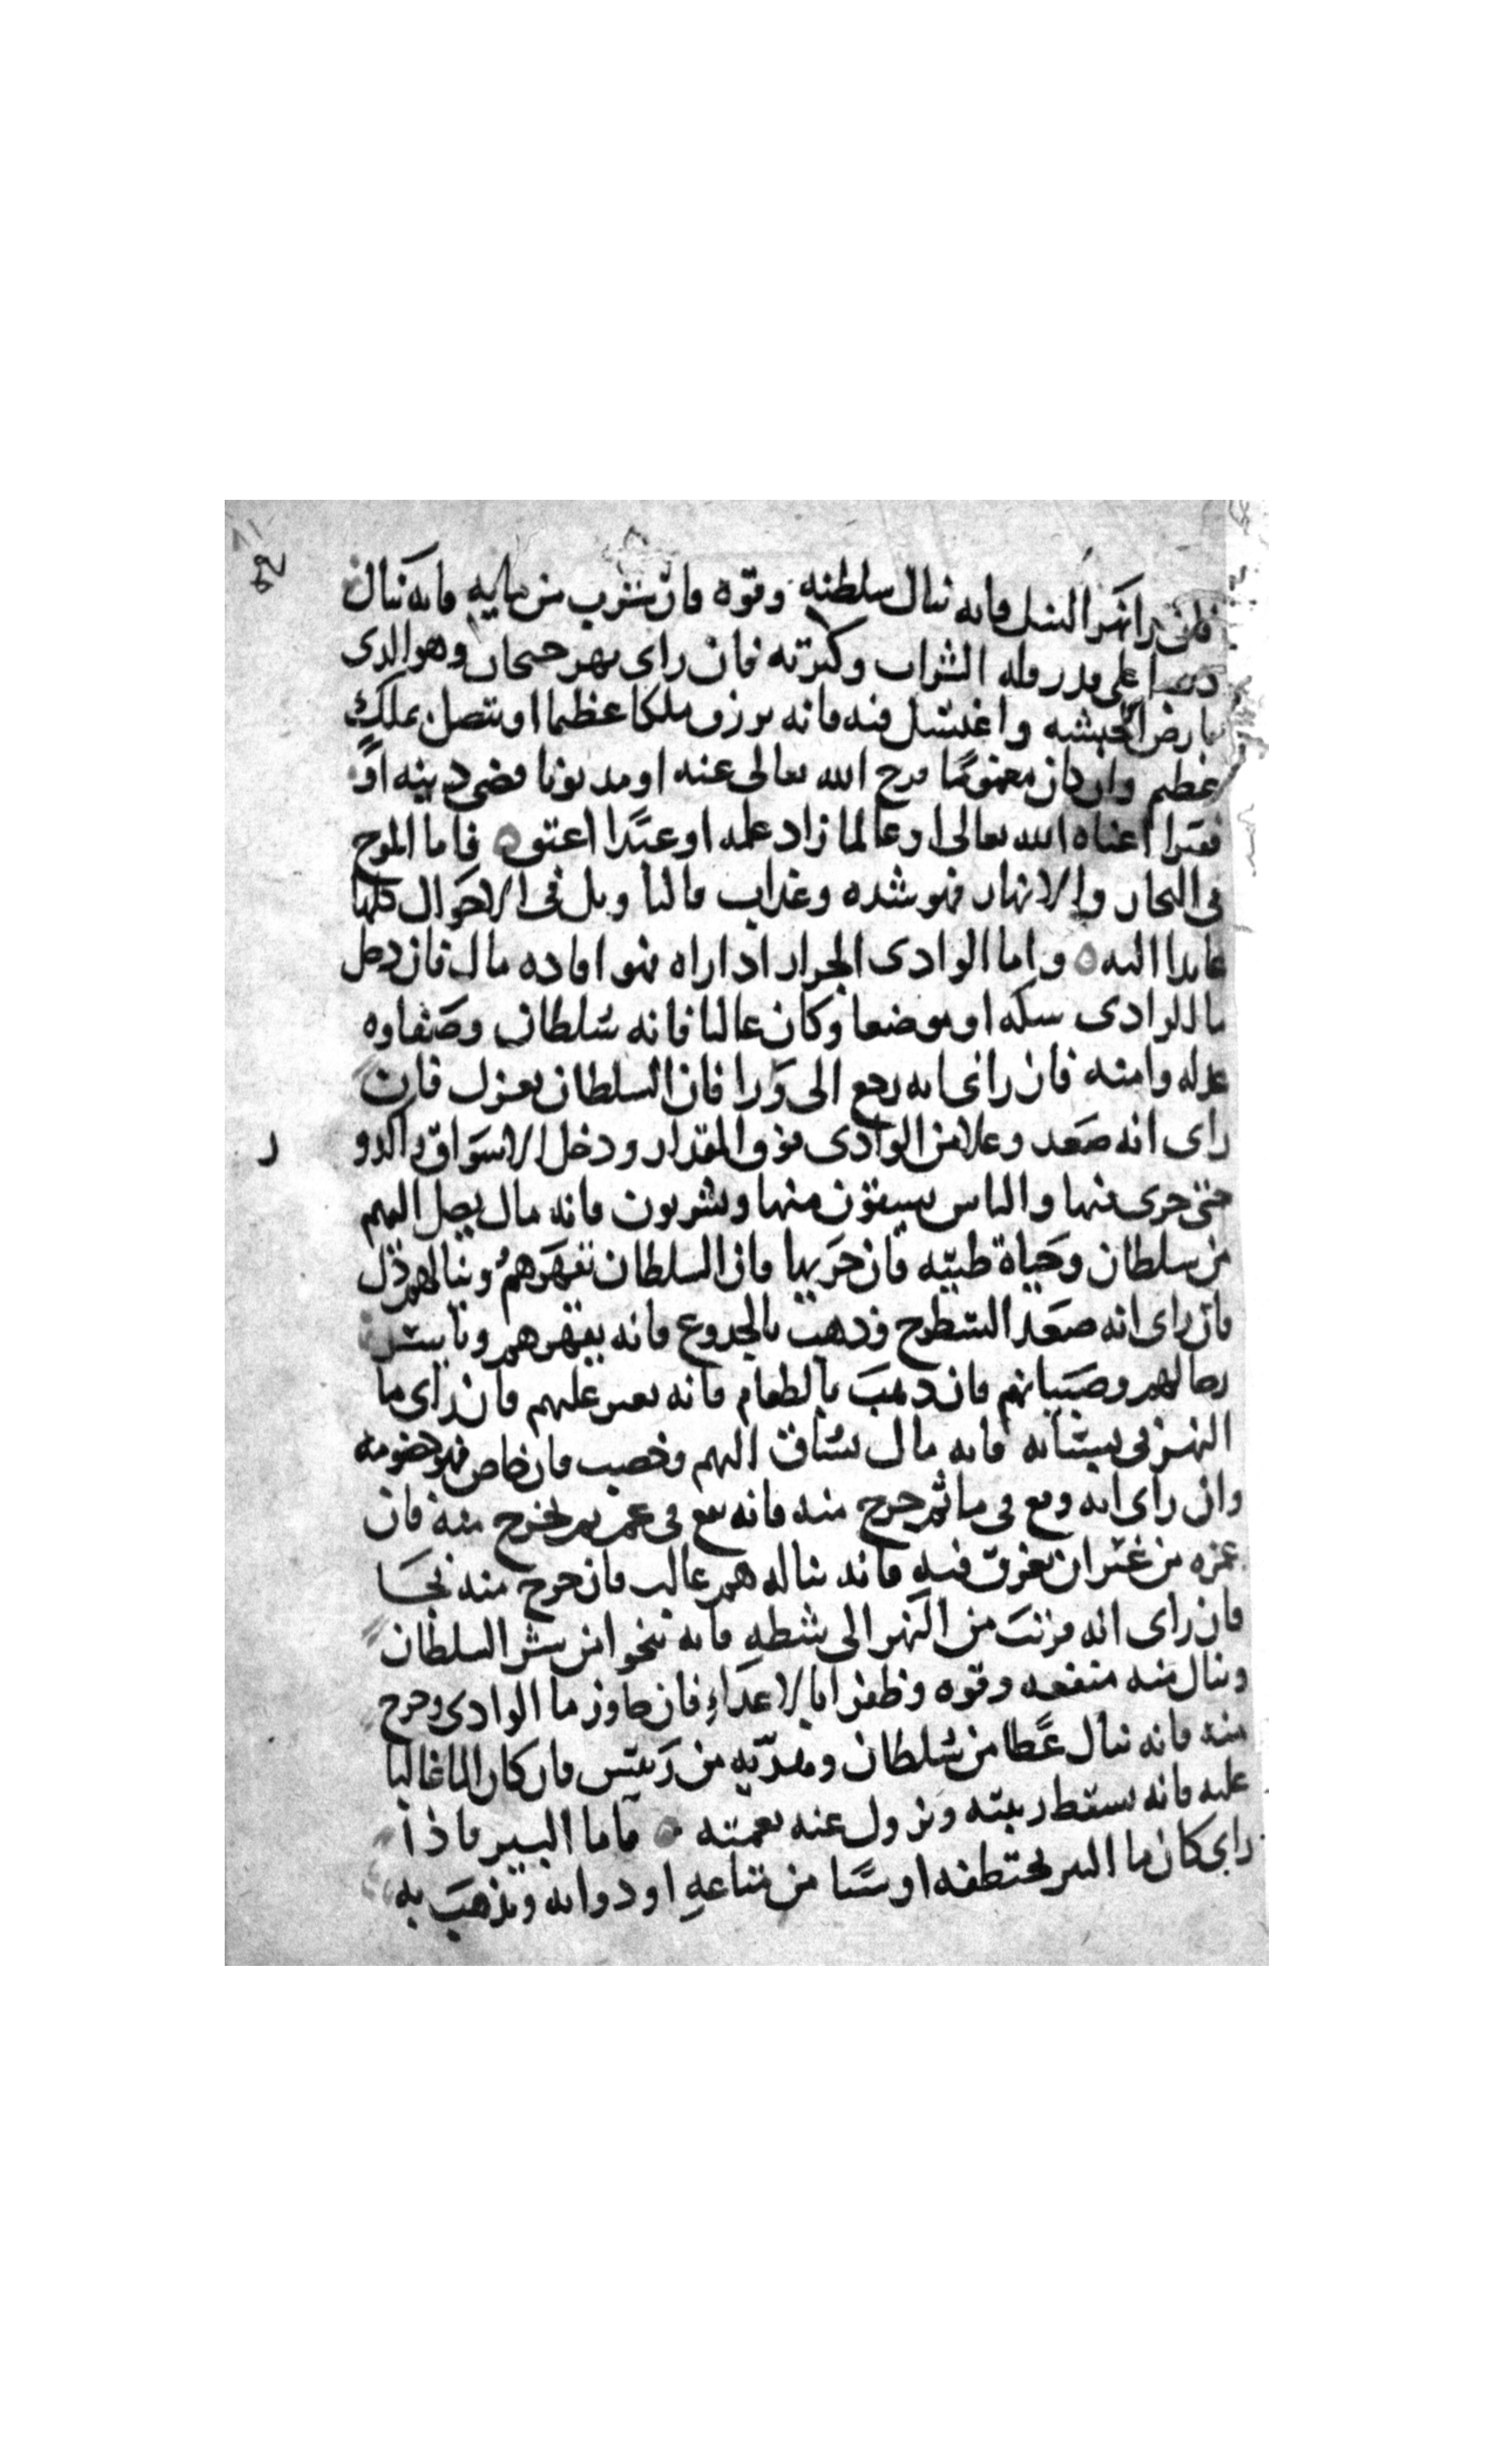 فان را نهر النيل فانه ينال سلطنه وقوه فان شرب من مايه فانه ينال
ذهبا على قدر الشراب وكثرته فان راى نهر جيحان وهو الذى
بارض الحبشه واغتسل فيه فانه يرزق ملكا عظيما او يتصل بملك
عظيم وان كان مغموما فرج الله تعالى عنه او مديونا قضى دينه او
فقيرا اغناه الله تعالى او عالما زاد علمه او عبدا اعتق فاما الموج
فى البحار والانهار فهو شده وعذاب فى الاحوال كلها
واما الوادى الجرار اذا راه فهو افاده مال فان دخل
ما الوادى سكه او موضعا وكان عاليا فانه سلطان وصفاوه
عدله وامنه فان راى انه رجع الى ورا فان السلطان يعزل فان
راى انه صعد وعلا من الوادى فوق المقدار ودخل الاسواق والدو
حتى جرى فيها والناس يسقون منها ويشربون فانه مال يصل اليهم
من سلطان وحياة طيبه فان خربها فان السلطان يقهرهم وينالهم ذل
فان راى انه صعد السطوح وذهب بالجدوع فانه يقهرهم
رجالهم وصبيانهم فان ذهب بالطعام فانه يغير عليهم فان راى ما
النهر فى بستانه فانه مال يساق اليهم وخصب فان خاص فهو خصومه
وان راى انه وقع فى ما ثم خرج منه فانه يقع فى غم ثم يخرج منه فان
غمره من غير ان يغرق فيه فانه يناله هم غالب فان خرج منه نجا
فان راى انه من النهر الى شطه فانه ينجو من شر السلطان
وينال منه منفعه وقوه وظفرا بالاعداء فان جاوز ما الوادى وخرج
منه فانه ينال عطا من سلطان من رييس فان كان الما غالبا
عليه فانه يسقط ربيته وتزول عنه نعمته فاما البير فاذا
راى كان ما البير يختطفه او شيا من متاعه او دوابه ويذهب به